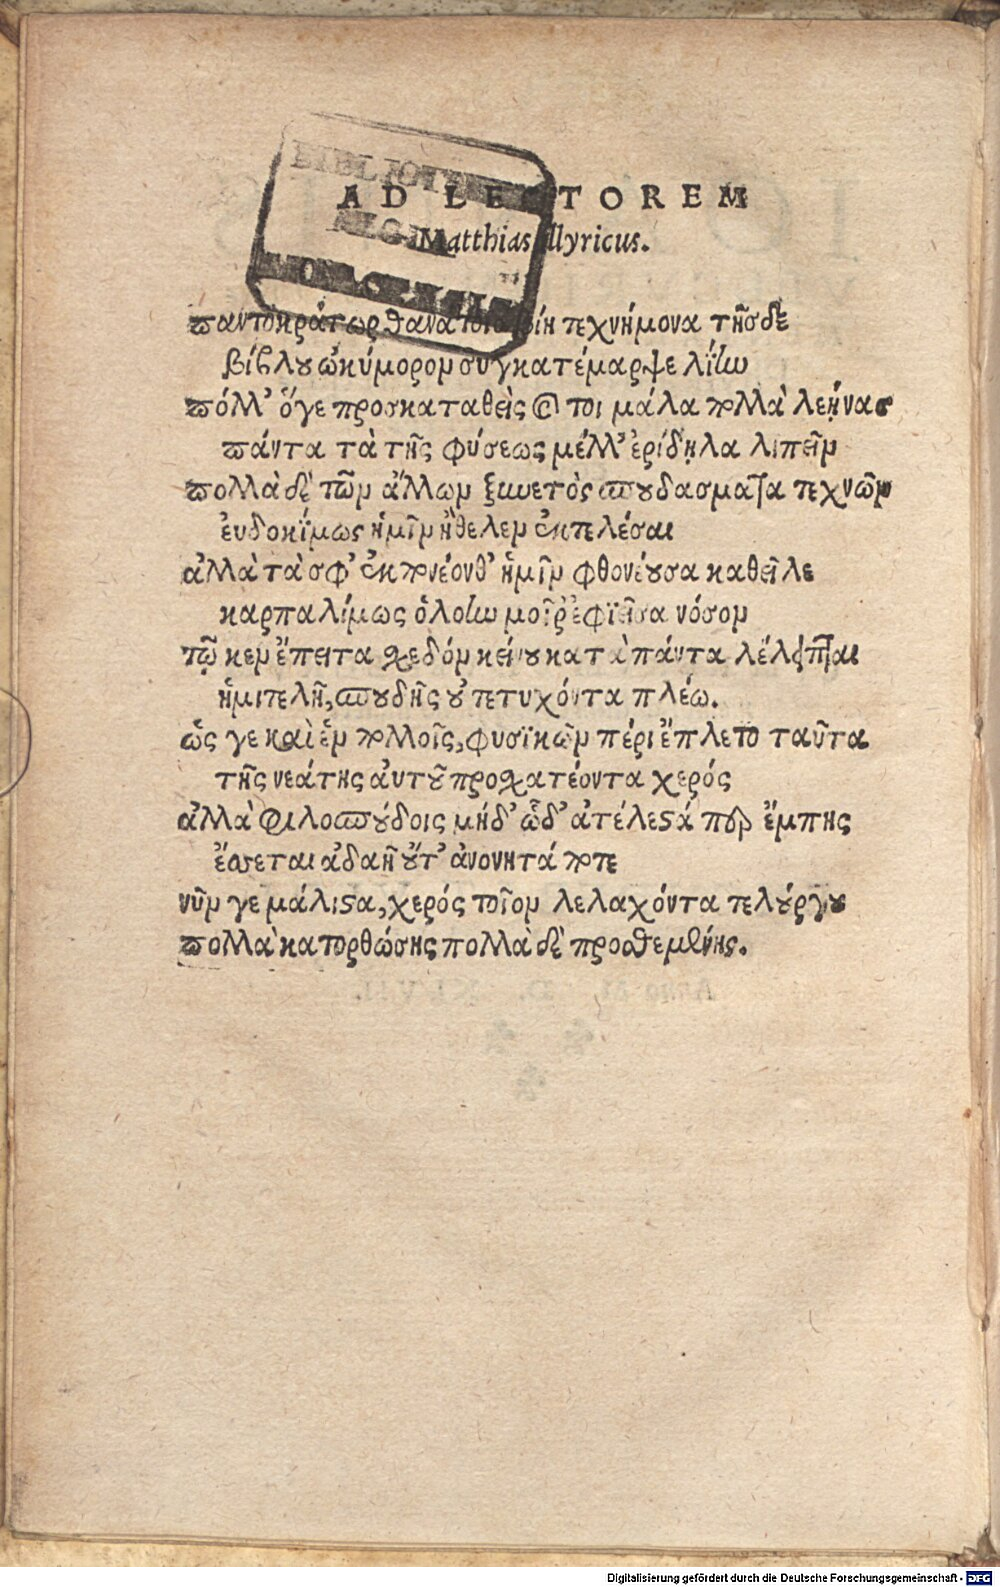 BIBLIOTHECA
REGIA
MONACENSIS
AD LECTOREM
Matthias Illyricus.
παντοκράτωρ θανάτοιο βίη τεχνήμονα τῆσδε
βίβλου ὠκύμορον συγκατέμαρψε λίην
πόλλ' ὅγε προσκαταθεὶς τοι μάλα πολλὰ λεήνας
πάντα τὰ τῆς φύσεως μέλλ' ἐρίδηλα λιπεῖν
πολλὰ δὲ τῶν ἄλλων ξυνετὸς σπουδασματα τεχνῶν
ἐυδοκίμως ἡμῖν ἤθελεν ἐκπελέσαι
ἀλλὰ τὰ σφ' ἡμῖν φθονέουσα καθεῖλε
καρπαλίμως ὀλοὴν μοῖρ' ἐφιεῖσα νόσον
τῷ κεν ἔπειτα σχεδόν κείνου κατὰ πάντα λέλειπται
ἡμιτελῆ, σπουδῆς οὐ τετυχόντα πλέω.
ὥς γε καὶ ἐν πολλοῖς, φυσικῶν πέρι ἔπλετο ταῦτα
τῆς νεάτης ἀυτοῦ προσχατέοντα χερός
ἀλλὰ φιλοσπούδοις μήδ' ὧδ' ἀτέλεστά περ ἔμπης
ἔσσεται ἀδαῆ οὔτ' ἀνονητά ποτε
νῦν γε μάλιστα, χερός τοῖον λελαχόντα τελούργου
πολλὰ κατορθώσης πολλὰ δὲ προσθεμένης.
Digitalisierung gefördert durch die Deutsche Forschungsgemeinschaft - DFG